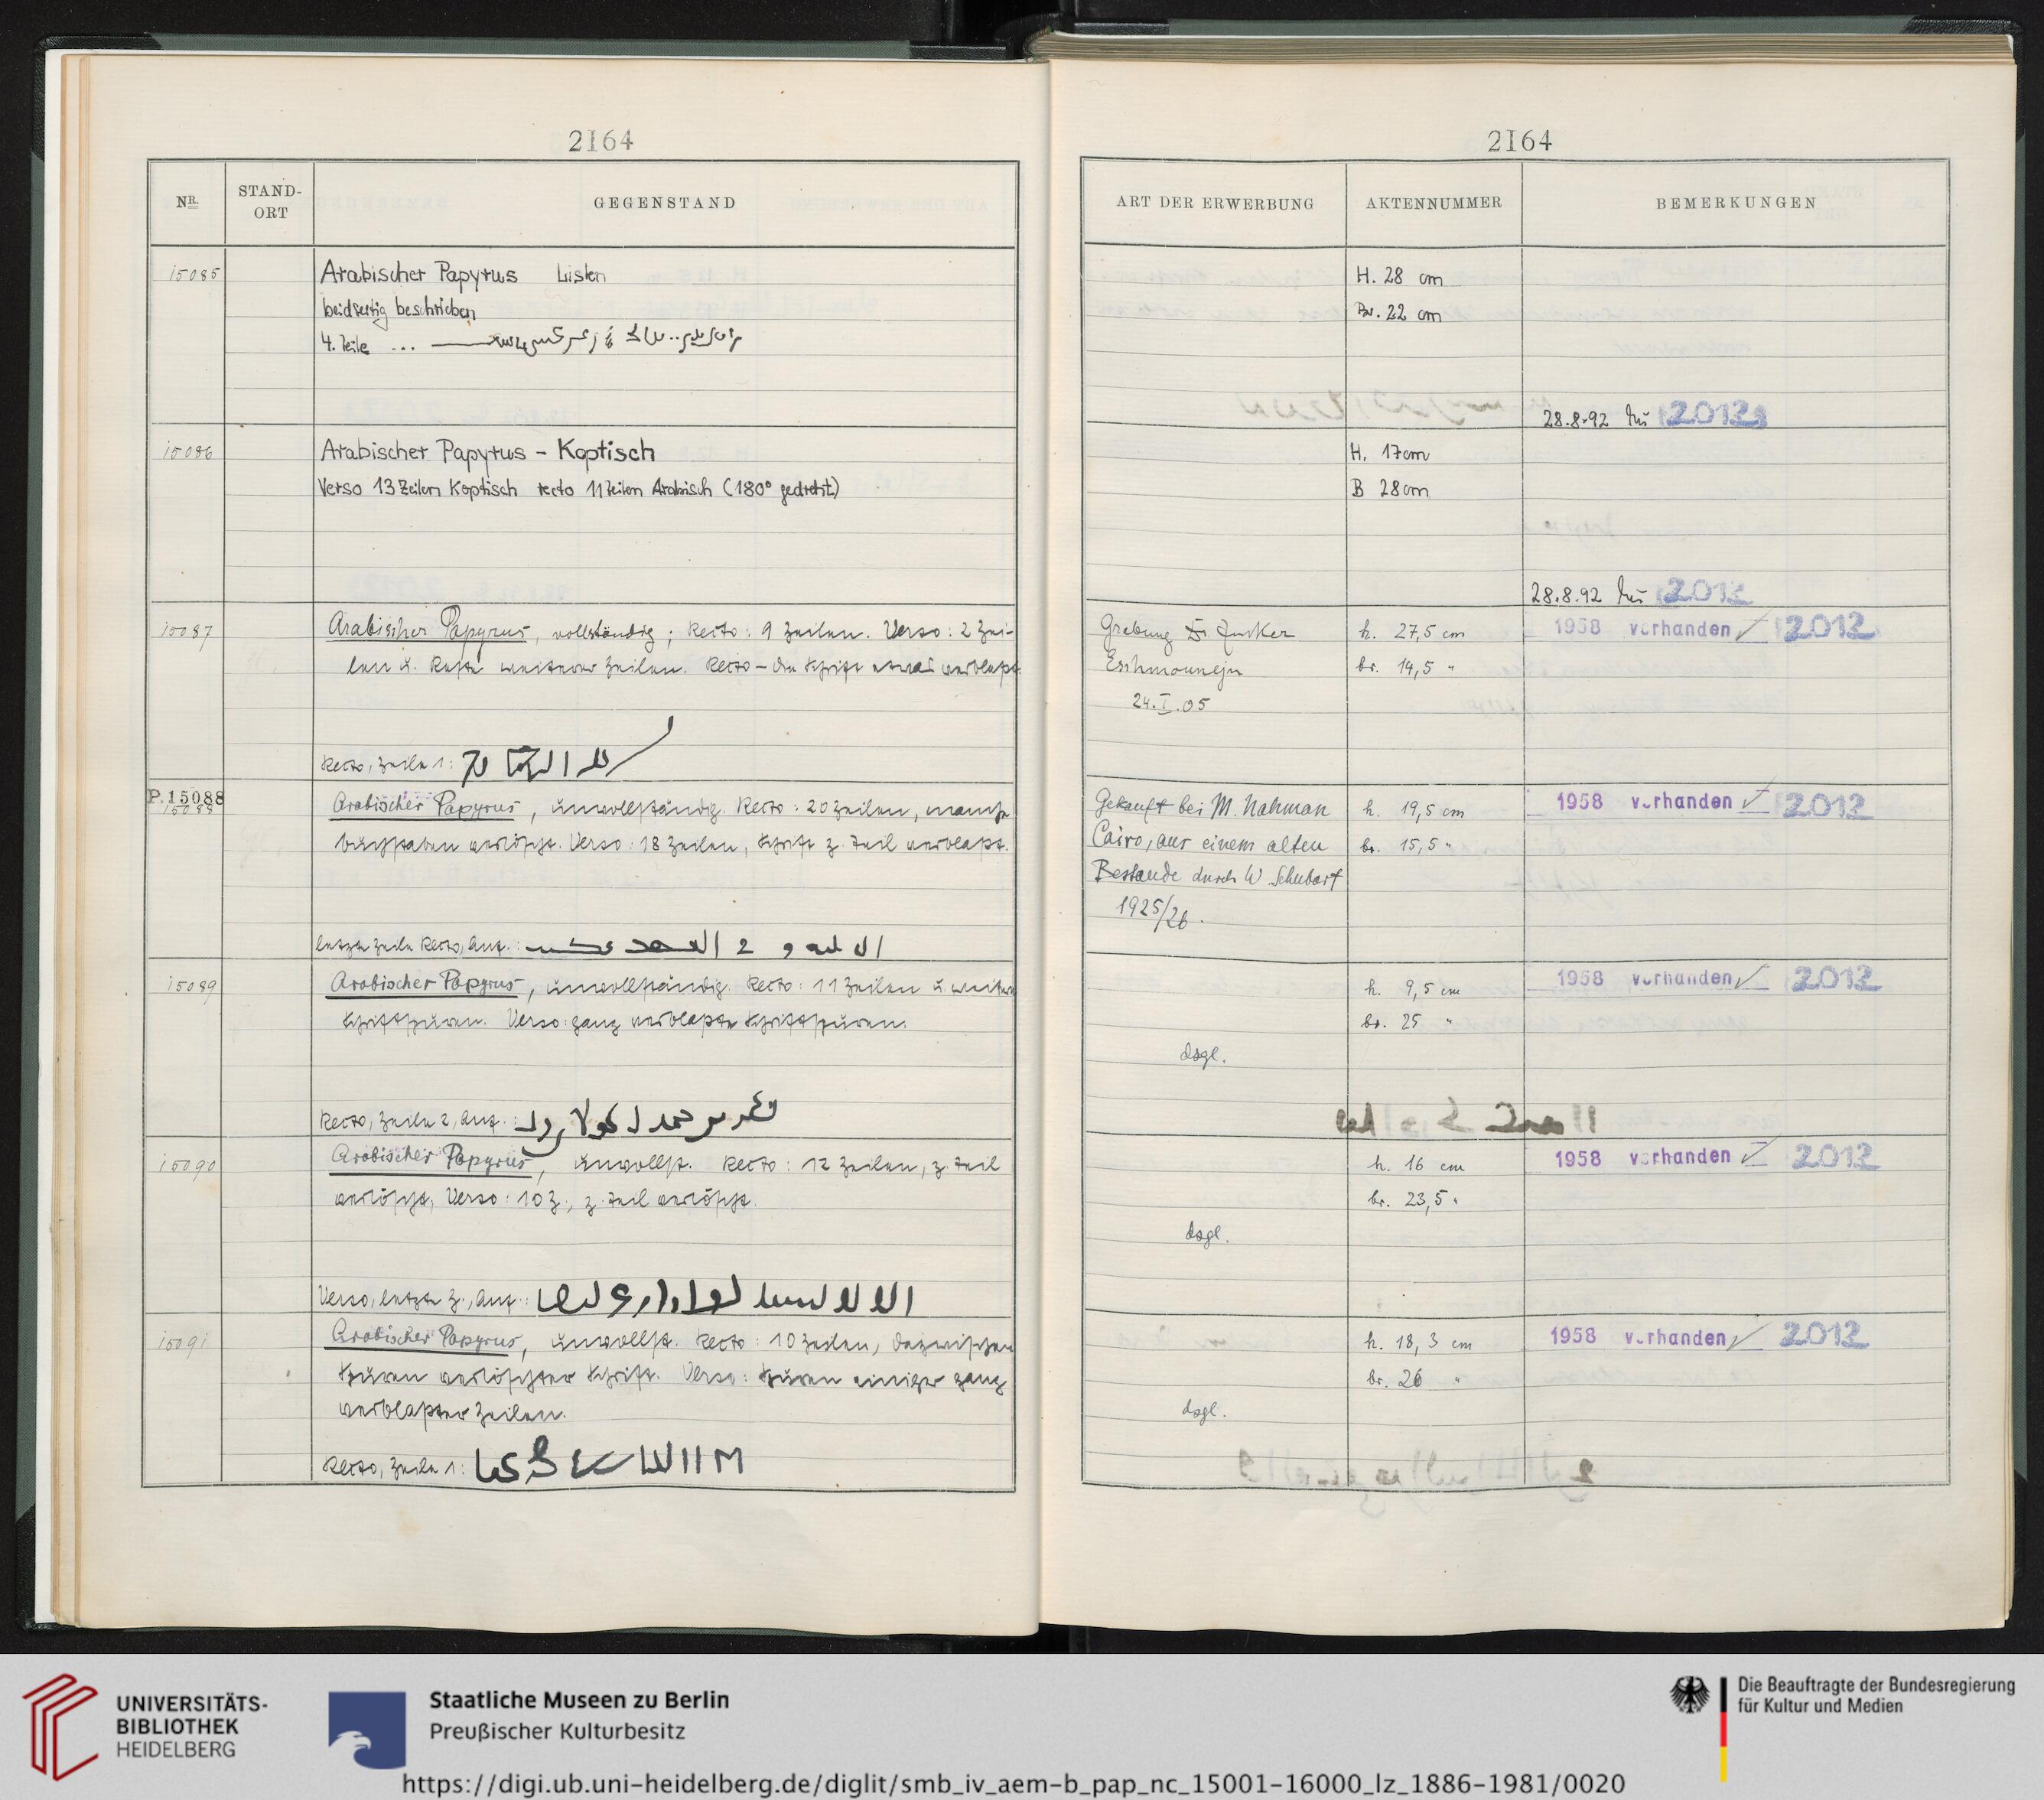 2164
NR.
STAND-
ORT
GEGENSTAND
15085
Arabischer Papyrus Listen
beidseitig beschrieben
4. Zeile ...
15086
Arabischer Papyrus - Koptisch
Verso 13 Zeilen Koptisch recto 11 Zeilen Arabisch (180° gedreht)
15087
Arabischer Papyrus, vollständig; Recto: 9 Zeilen. Verso: 2 Zei-
len u. Reste weiterer Zeilen. Recto - die Schrift etwas verblaßt
Recto, Zeile 1:
P. 15088
15088
Arabischer Papyrus, unvollständig. Recto: 20 Zeilen, manche
Buchstaben verlöscht. Verso: 18 Zeilen, Schrift z. Teil verblaßt.
letzte Zeile Recto, Anf.:
15089
Arabischer Papyrus, unvollständig. Recto: 11 Zeilen u. weitere
Schriftspuren. Verso: ganz verblaßte Schriftspuren.
Recto, Zeile 2, Anf.:
15090
Arabischer Papyrus, unvollst. Recto: 12 Zeilen, z. Teil
verlöscht, Verso: 10 Z., z. Teil verlöscht.
Verso, letzte Z., Anf.:
15091
Arabischer Papyrus, unvollst. Recto: 10 Zeilen, dazwischen
Spuren verlöschter Schrift. Verso: Spuren einiger ganz
verblaßter Zeilen.
Recto, Zeile 1:
2164
ART DER ERWERBUNG
AKTENNUMMER
BEMERKUNGEN
H. 28 cm
Br. 22 cm
28.8.92 2012
H. 17cm
B 28cm
28.8.92 2012
Grabung Dr. Zucker
Eschmounejn
24.I.05
h. 27,5 cm
br. 14,5 "
1958 vorhanden ✓ 2012
Gekauft bei M. Nahman
Cairo, aus einem alten
Bestande durch W. Schubart
1925/26.
h. 19,5 cm
br. 15,5 "
1958 vorhanden ✓ 2012
dsgl.
h. 9,5 cm
br. 25 "
1958 vorhanden ✓ 2012
dsgl.
h. 16 cm
br. 23,5 "
1958 vorhanden ✓ 2012
dsgl.
h. 18,3 cm
br. 26 "
1958 vorhanden ✓ 2012
UNIVERSITÄTS-
BIBLIOTHEK
HEIDELBERG
Staatliche Museen zu Berlin
Preußischer Kulturbesitz
Die Beauftragte der Bundesregierung
für Kultur und Medien
https://digi.ub.uni-heidelberg.de/diglit/smb_iv_aem-b_pap_nc_15001-16000_lz_1886-1981/0020